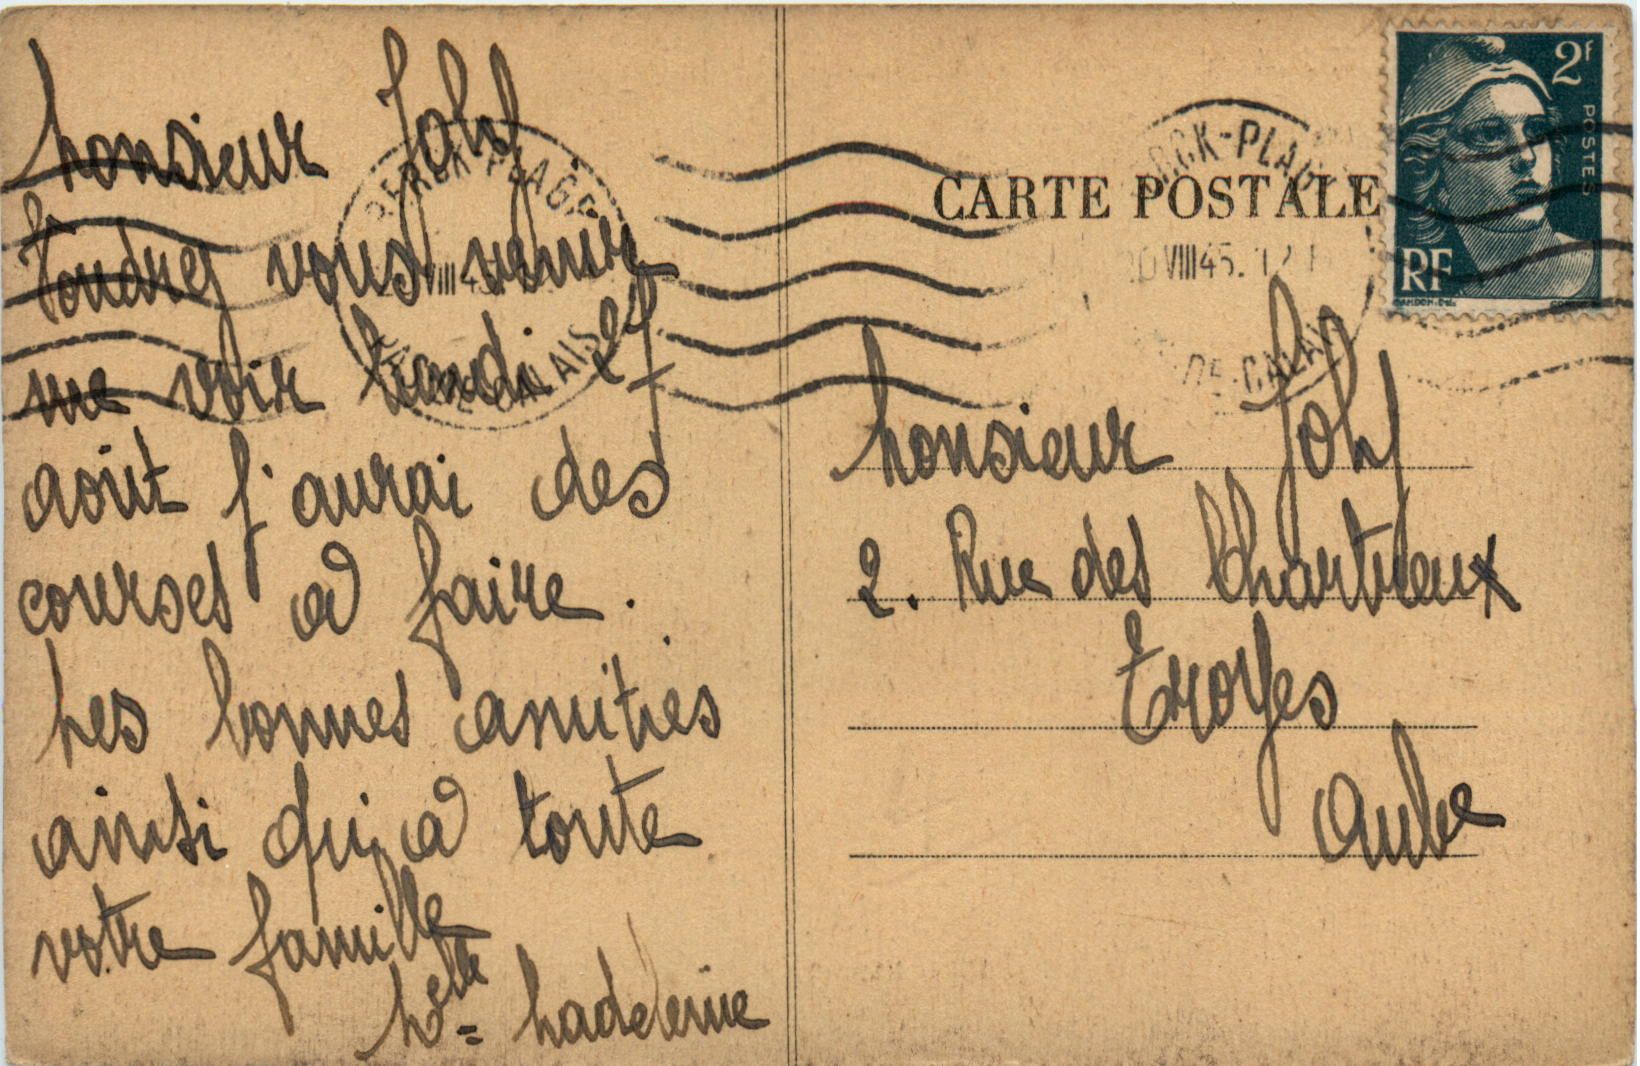 Monsieur Joly
Voudrez vous venir
me voir lundi 27
août j'aurai des
courses a faire.
Mes bonnes amitiés
ainsi qu'a toute
votre famille
Melle Madeleine
BERCK-PLAGE
VIII 45
PAS-DE-CALAIS
CARTE POSTALE
BERCK-PLAGE
20 VIII 45. 12 H
PAS-DE-CALAIS
2F
POSTES
RF
GANDON
Monsieur Joly
2. Rue des Chartreux
Troyes
Aube